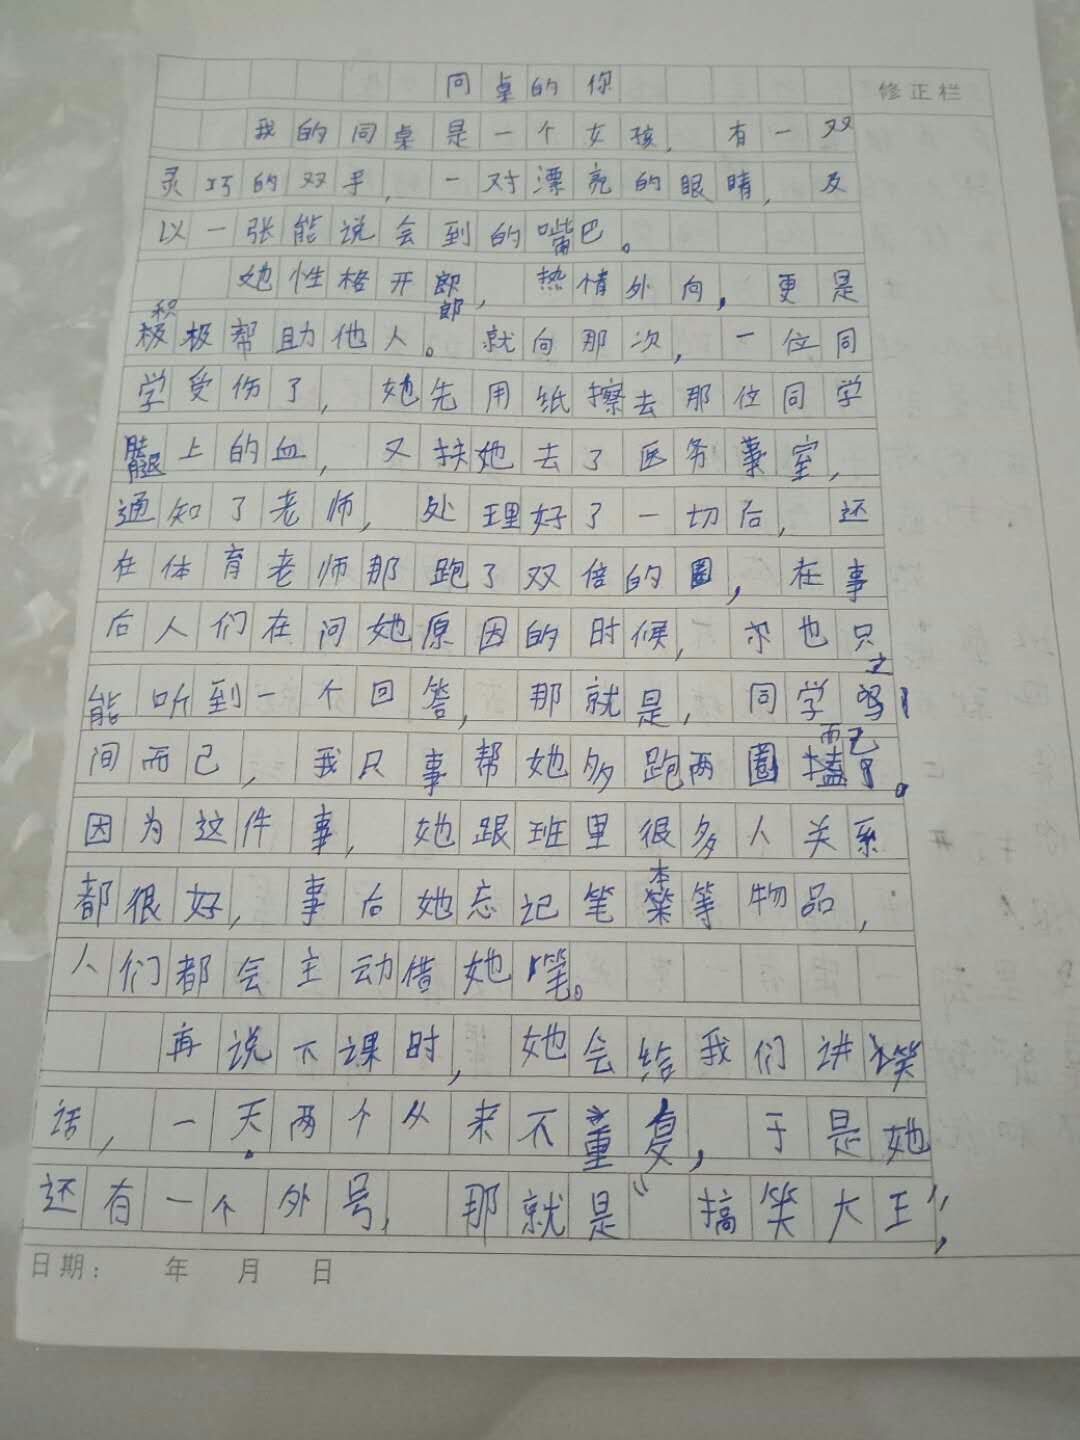 同桌的你
修正栏
我的同桌是一个女孩，有一双
灵巧的双手，一对漂亮的眼睛，及
以一张能说会到的嘴巴。
她性格开郎，热情外向，更是
积极帮助他人。就向那次，一位同
学受伤了，她先用纸擦去那位同学
腿上的血，又扶她去了医务室，
通知了老师，处理好了一切后，还
在体育老师那跑了双倍的圈，在事
后人们在问她原因的时候，也只
能听到一个回答，那就是，同学之
间而己，我只事帮她多跑两圈而已。
因为这件事，她跟班里很多人关系
都很好，事后她忘记笔本等物品，
人们都会主动借她笔。
再说下课时，她会给我们讲笑
话，一天两个从来不重复，于是她
还有一个外号，那就是“搞笑大王”，
日期： 年 月 日